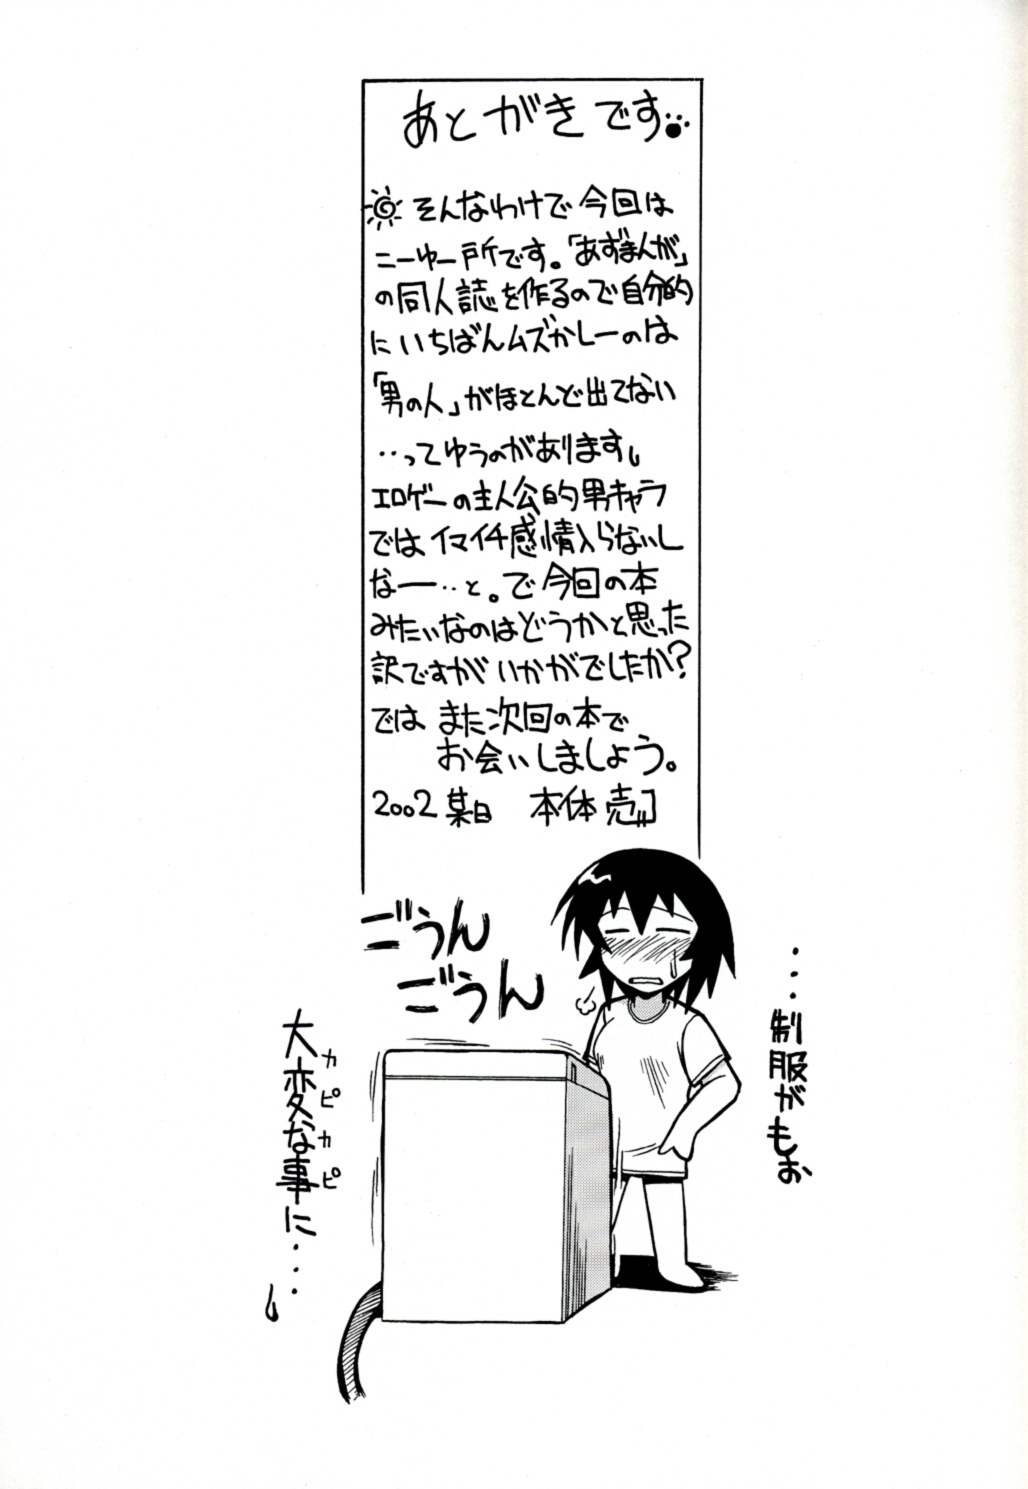 あとがきです
そんなわけで今回は
こーゆー所です。「あずまんが」
の同人誌を作るので自分的
にいちばんムズかしーのは
「男の人」がほとんど出てない
‥ってゆうのがあります。
エロゲーの主人公的男キャラ
ではイマイチ感情入らないし
なー‥と。で今回の本
みたいなのはどうかと思った
訳ですがいかがでしたか?
ではまた次回の本で
お会いしましょう。
2002 某日 本体売
ごうん
ごうん
・・・制服がもお
大変な事に・・・
カピカピ